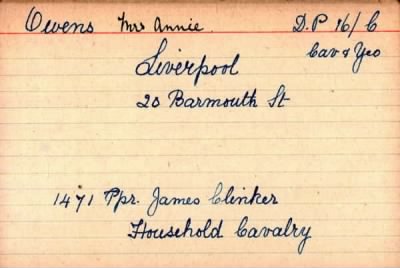 Owens Mrs Annie. D.P 16/C
Cav & Yeo
Liverpool
20 Barmouth St
1471 Tpr. James Clinker
Household Cavalry